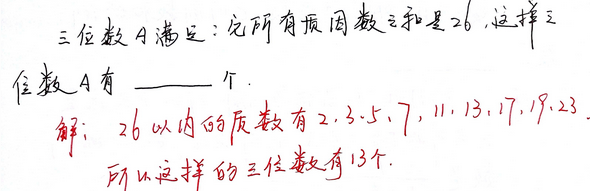 三位数A满足：它所有质因数之和是26，这样三
位数A有 ______ 个．
解：26以内的质数有2、3、5、7，11、13、17，19、23．
所以这样的三位数有13个．